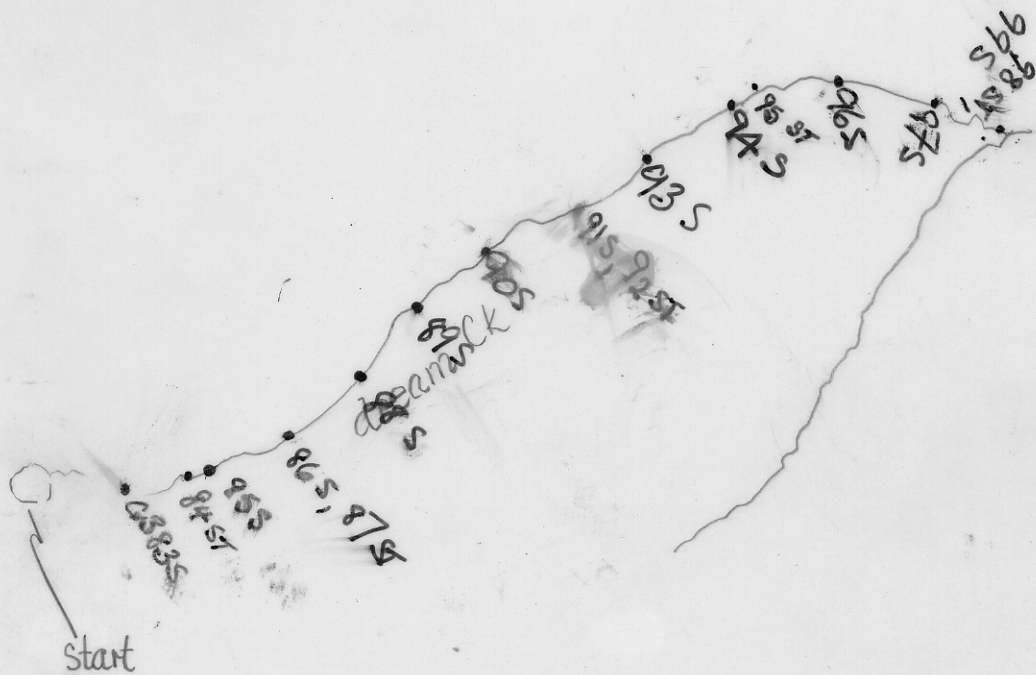 start
CB83S
84 ST
85 S
86 S, 87 ST
88 S
deermack
89 S
90S
91S, 92 ST
93 S
94 S
95 ST
96S
97S
98
99S